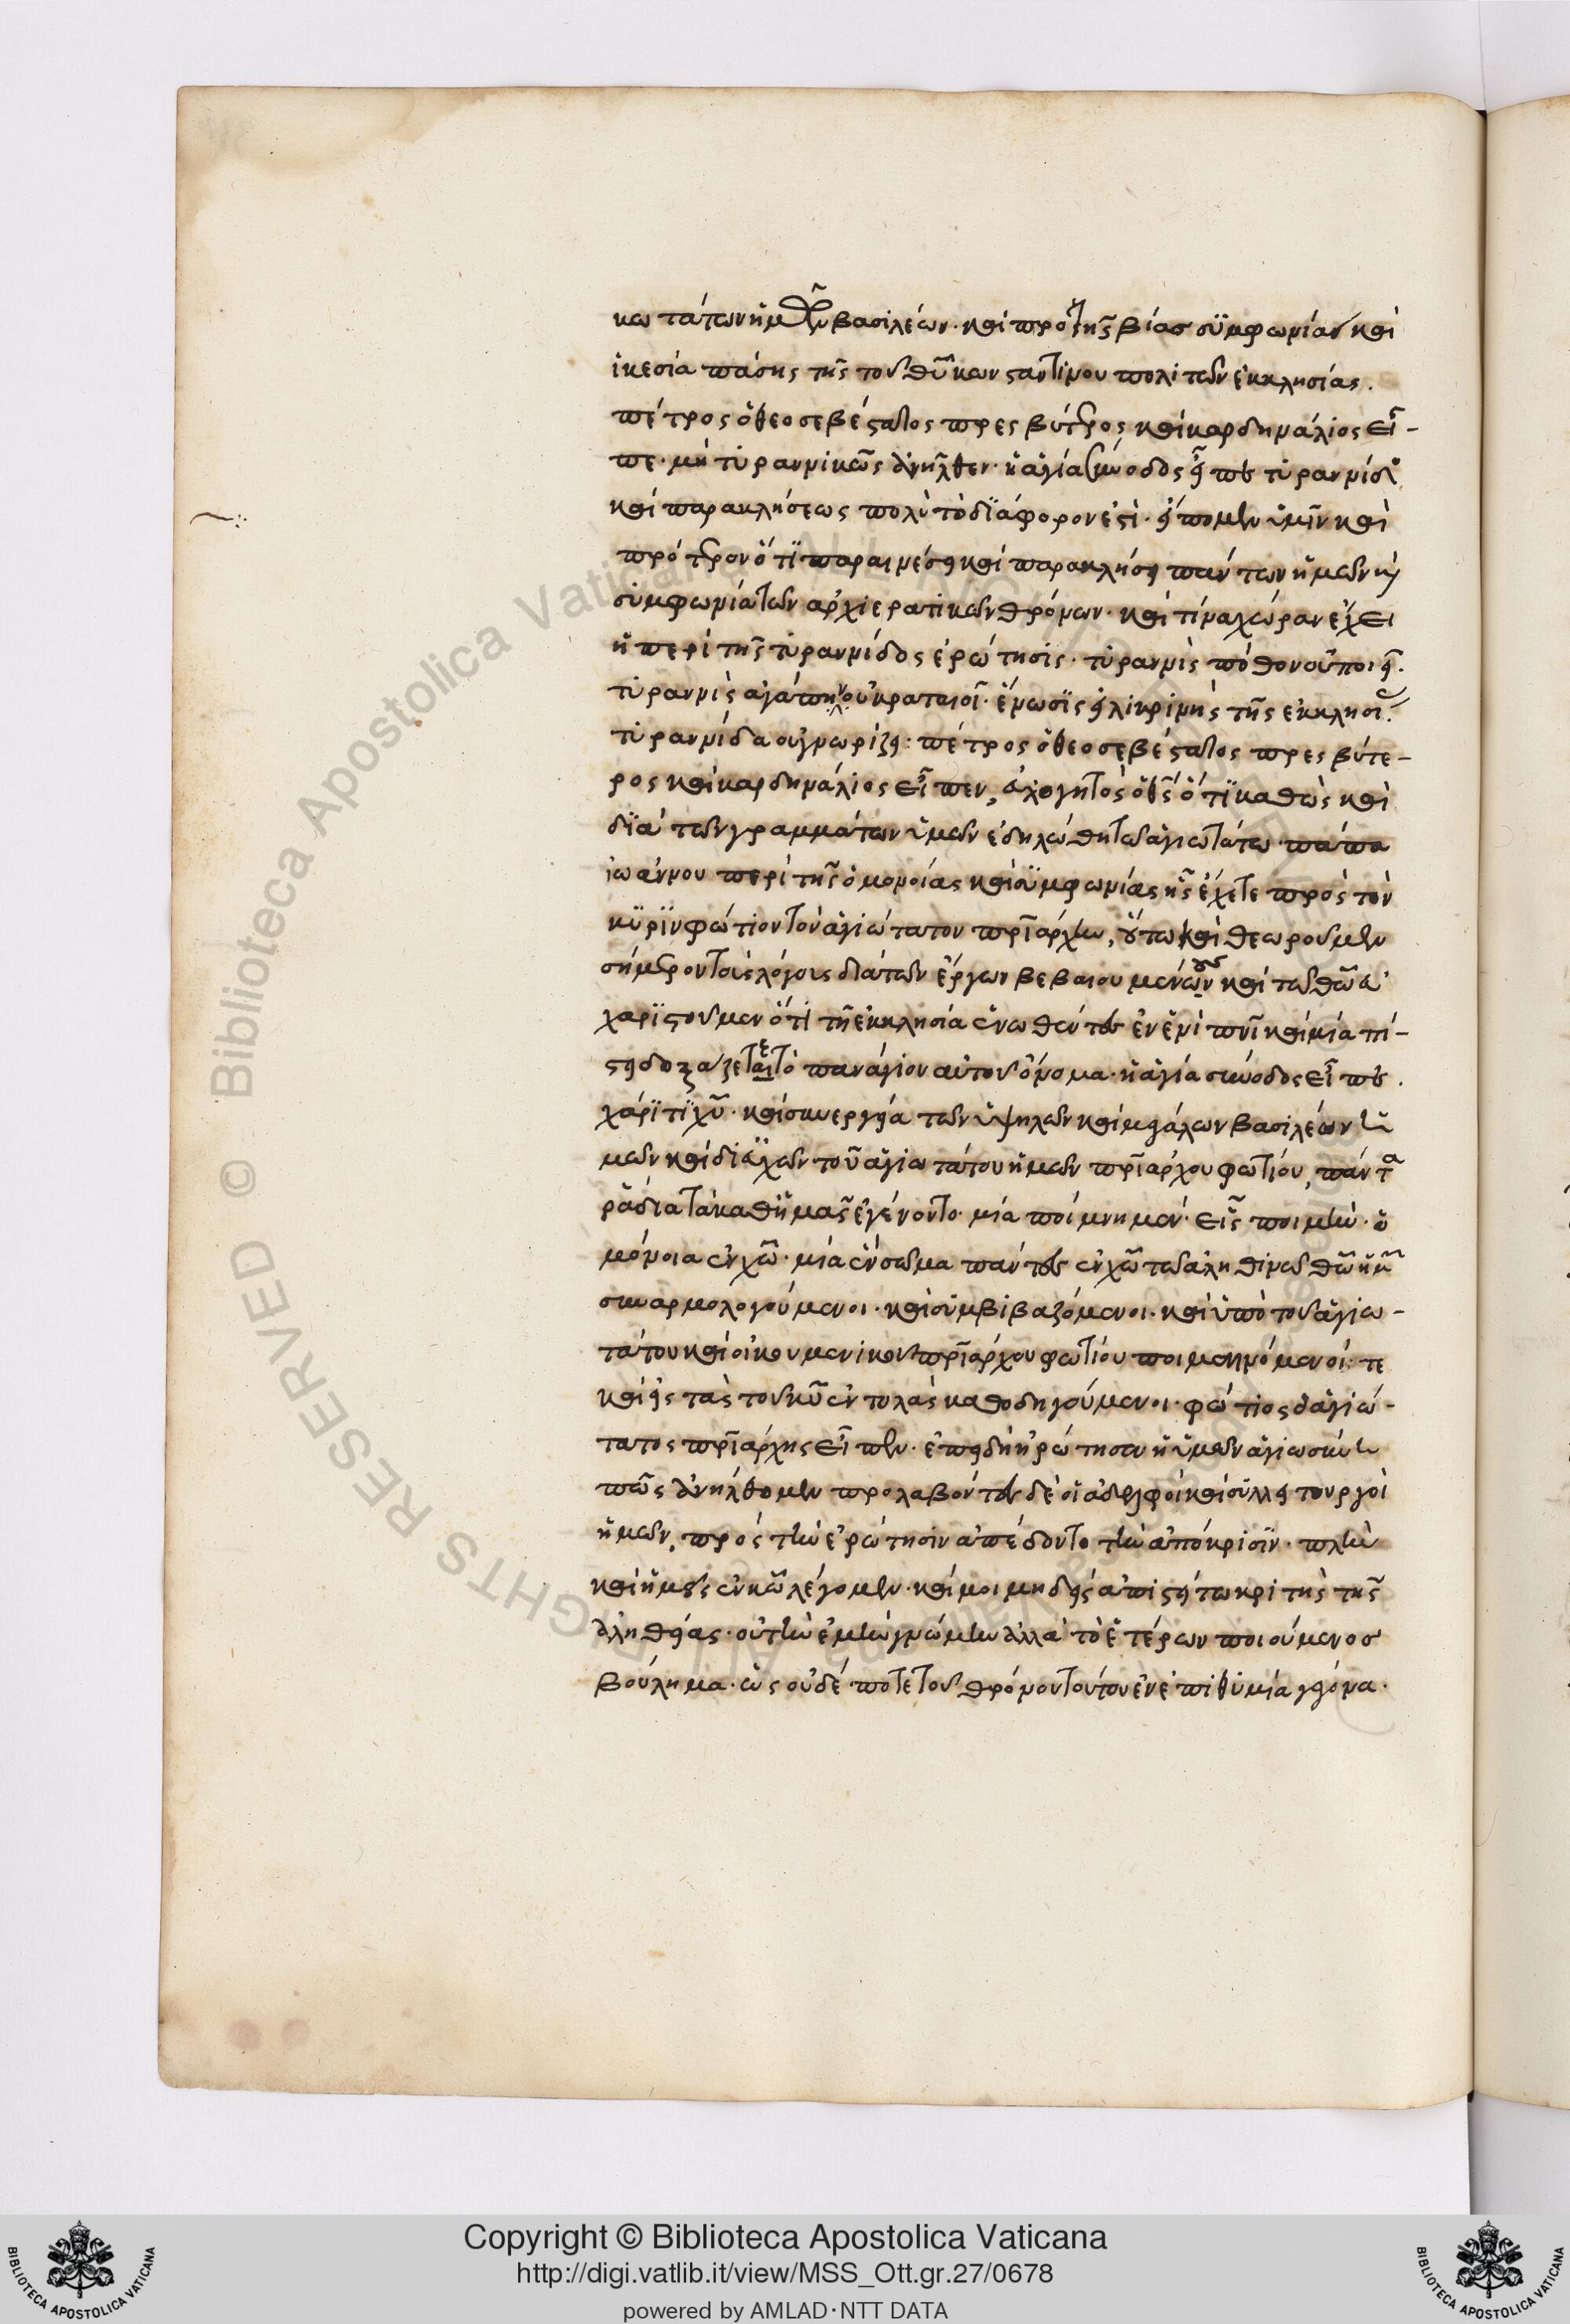 κωτάτων ἡμῶν βασιλέων. καὶ πρὸ τῆς βίας συμφωνίαν καὶ
ἱκεσία πάσης τῆς τοῦ θῦ κωνσταντίνου πολιτῶν ἐκκλησίας.
πέτρος ὁ θεοσεβέστατος πρεσβύτερος καὶ καρδηνάλιος εἶ-
πε. μὴ τυραννικῶς ἀνῆλθεν. ἡ ἁγία σύνοδος εἶπε τυραννίδος
καὶ παρακλήσεως πολὺ τὸ διάφορον ἐστί. εἴπομεν ὑμῖν καὶ
πρότερον ὅτι παραινέσει καὶ παρακλήσει πάντων ἡμῶν καὶ
συμφωνία τῶν ἀρχιερατικῶν θρόνων. καὶ τίνα χώραν ἔχει
ἡ περὶ τῆς τυραννίδος ἐρώτησις. τυραννὶς πόθον οὐ ποιεῖ.
τυραννὶς ἀγάπην οὐ κραταιοῖ. ἕνωσις εἰλικρινὴς τῆς ἐκκλησίας
τυραννίδα οὐ γνωρίζει: πέτρος ὁ θεοσεβέστατος πρεσβύτε-
ρος καὶ καρδηνάλιος εἶπεν, εὐλογητὸς ὁ θς ὅτι καθὼς καὶ
διὰ τῶν γραμμάτων ὑμῶν ἐδηλώθη τῶ ἁγιωτάτω πάπα
ἰωάννου περὶ τῆς ὁμονοίας καὶ συμφωνίας ἧς ἔχετε πρὸς τὸν
κύριν φώτιον τὸν ἁγιώτατον πριάρχην, οὕτω καὶ θεωροῦμεν
σήμερον τοὺς λόγους διὰ τῶν ἔργων βεβαιουμένων καὶ τῶ θῶ εὐ
χαριστοῦμεν ὅτι τῆ ἐκκλησία ἑνωθέντες ἐν ἑνὶ πνι καὶ μιᾶ πί-
στει δοξάζεται τὸ πανάγιον αὐτοῦ ὄνομα. ἡ ἁγία σύνοδος εἶπε.
χάριτι χῦ. καὶ συνεργεία τῶν ὑψηλῶν καὶ μεγάλων βασιλέων ἡ
μῶν καὶ δι' εὐχῶν τοῦ ἁγιωτάτου ἡμῶν πριάρχου φωτίου, πάντα
ῥάδια τὰ καθ' ἡμᾶς ἐγένοντο. μία ποίμνη μεν. εἷς ποιμὴν. ὁ
μόνοια ἐν χῶ. μία ἓν σῶμα πάντες ἐν χῶ τῶ ἀληθινῶ θῶ ἡμῶν
συναρμολογούμενοι. καὶ συμβιβαζόμενοι. καὶ ὑπὸ τοῦ ἁγιω-
τάτου καὶ οἰκουμενικοῦ πριάρχου φωτίου ποιμαινόμενοί τε
καὶ εἰς τὰς τοῦ κῦ ἐντολὰς καθοδηγούμενοι. φώτιος ὁ ἁγιώ-
τατος πριάρχης εἶπεν. ἐπειδὴ ἠρώτησεν ἡ ὑμῶν ἁγιωσύνη
πῶς ἀνήλθομεν προλαβόντες δὲ οἱ ἀδελφοὶ καὶ συλλειτουργοὶ
ἡμῶν, πρὸς τὴν ἐρώτησιν ἀπέδοντο τὴν ἀπόκρισιν. πλὴν
καὶ ἡμεῖς ἐν κῶ λέγομεν. καί μοι μηδεὶς ἀπιστείτω κριτὴς τῆς
ἀληθείας. οὐ τὴν ἐμὴν γνώμην ἀλλὰ τὸ ἑτέρων ποιούμενος
βούλημα. ὡς οὐδέποτε τοῦ θρόνου τούτου ἐν ἐπιθυμία γέγονα.
Copyright © Biblioteca Apostolica Vaticana
http://digi.vatlib.it/view/MSS_Ott.gr.27/0678
powered by AMLAD·NTT DATA